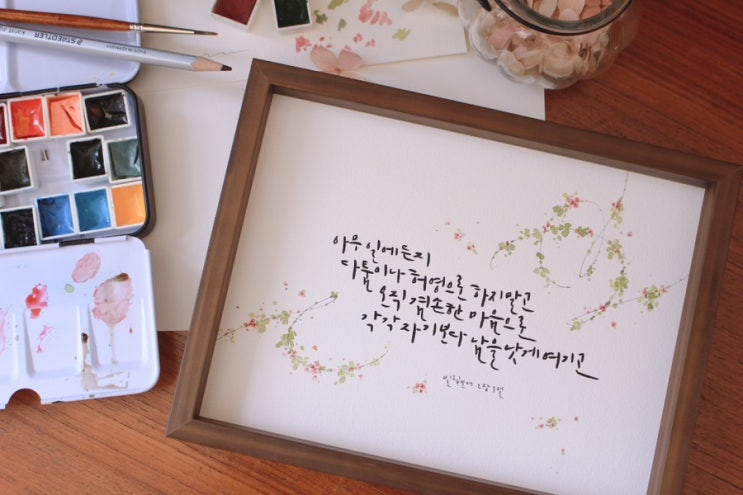 STAEDTLER
아무 일에든지
다툼이나 허영으로 하지말고
오직 겸손한 마음으로
각각 자기보다 남을 낫게 여기고
빌립보서 2장 3절